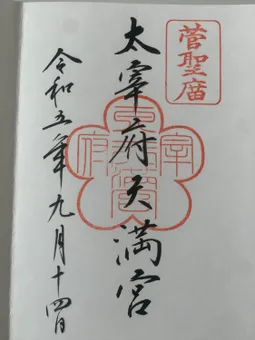 菅聖廟
太宰府天満宮
令和五年九月十四日